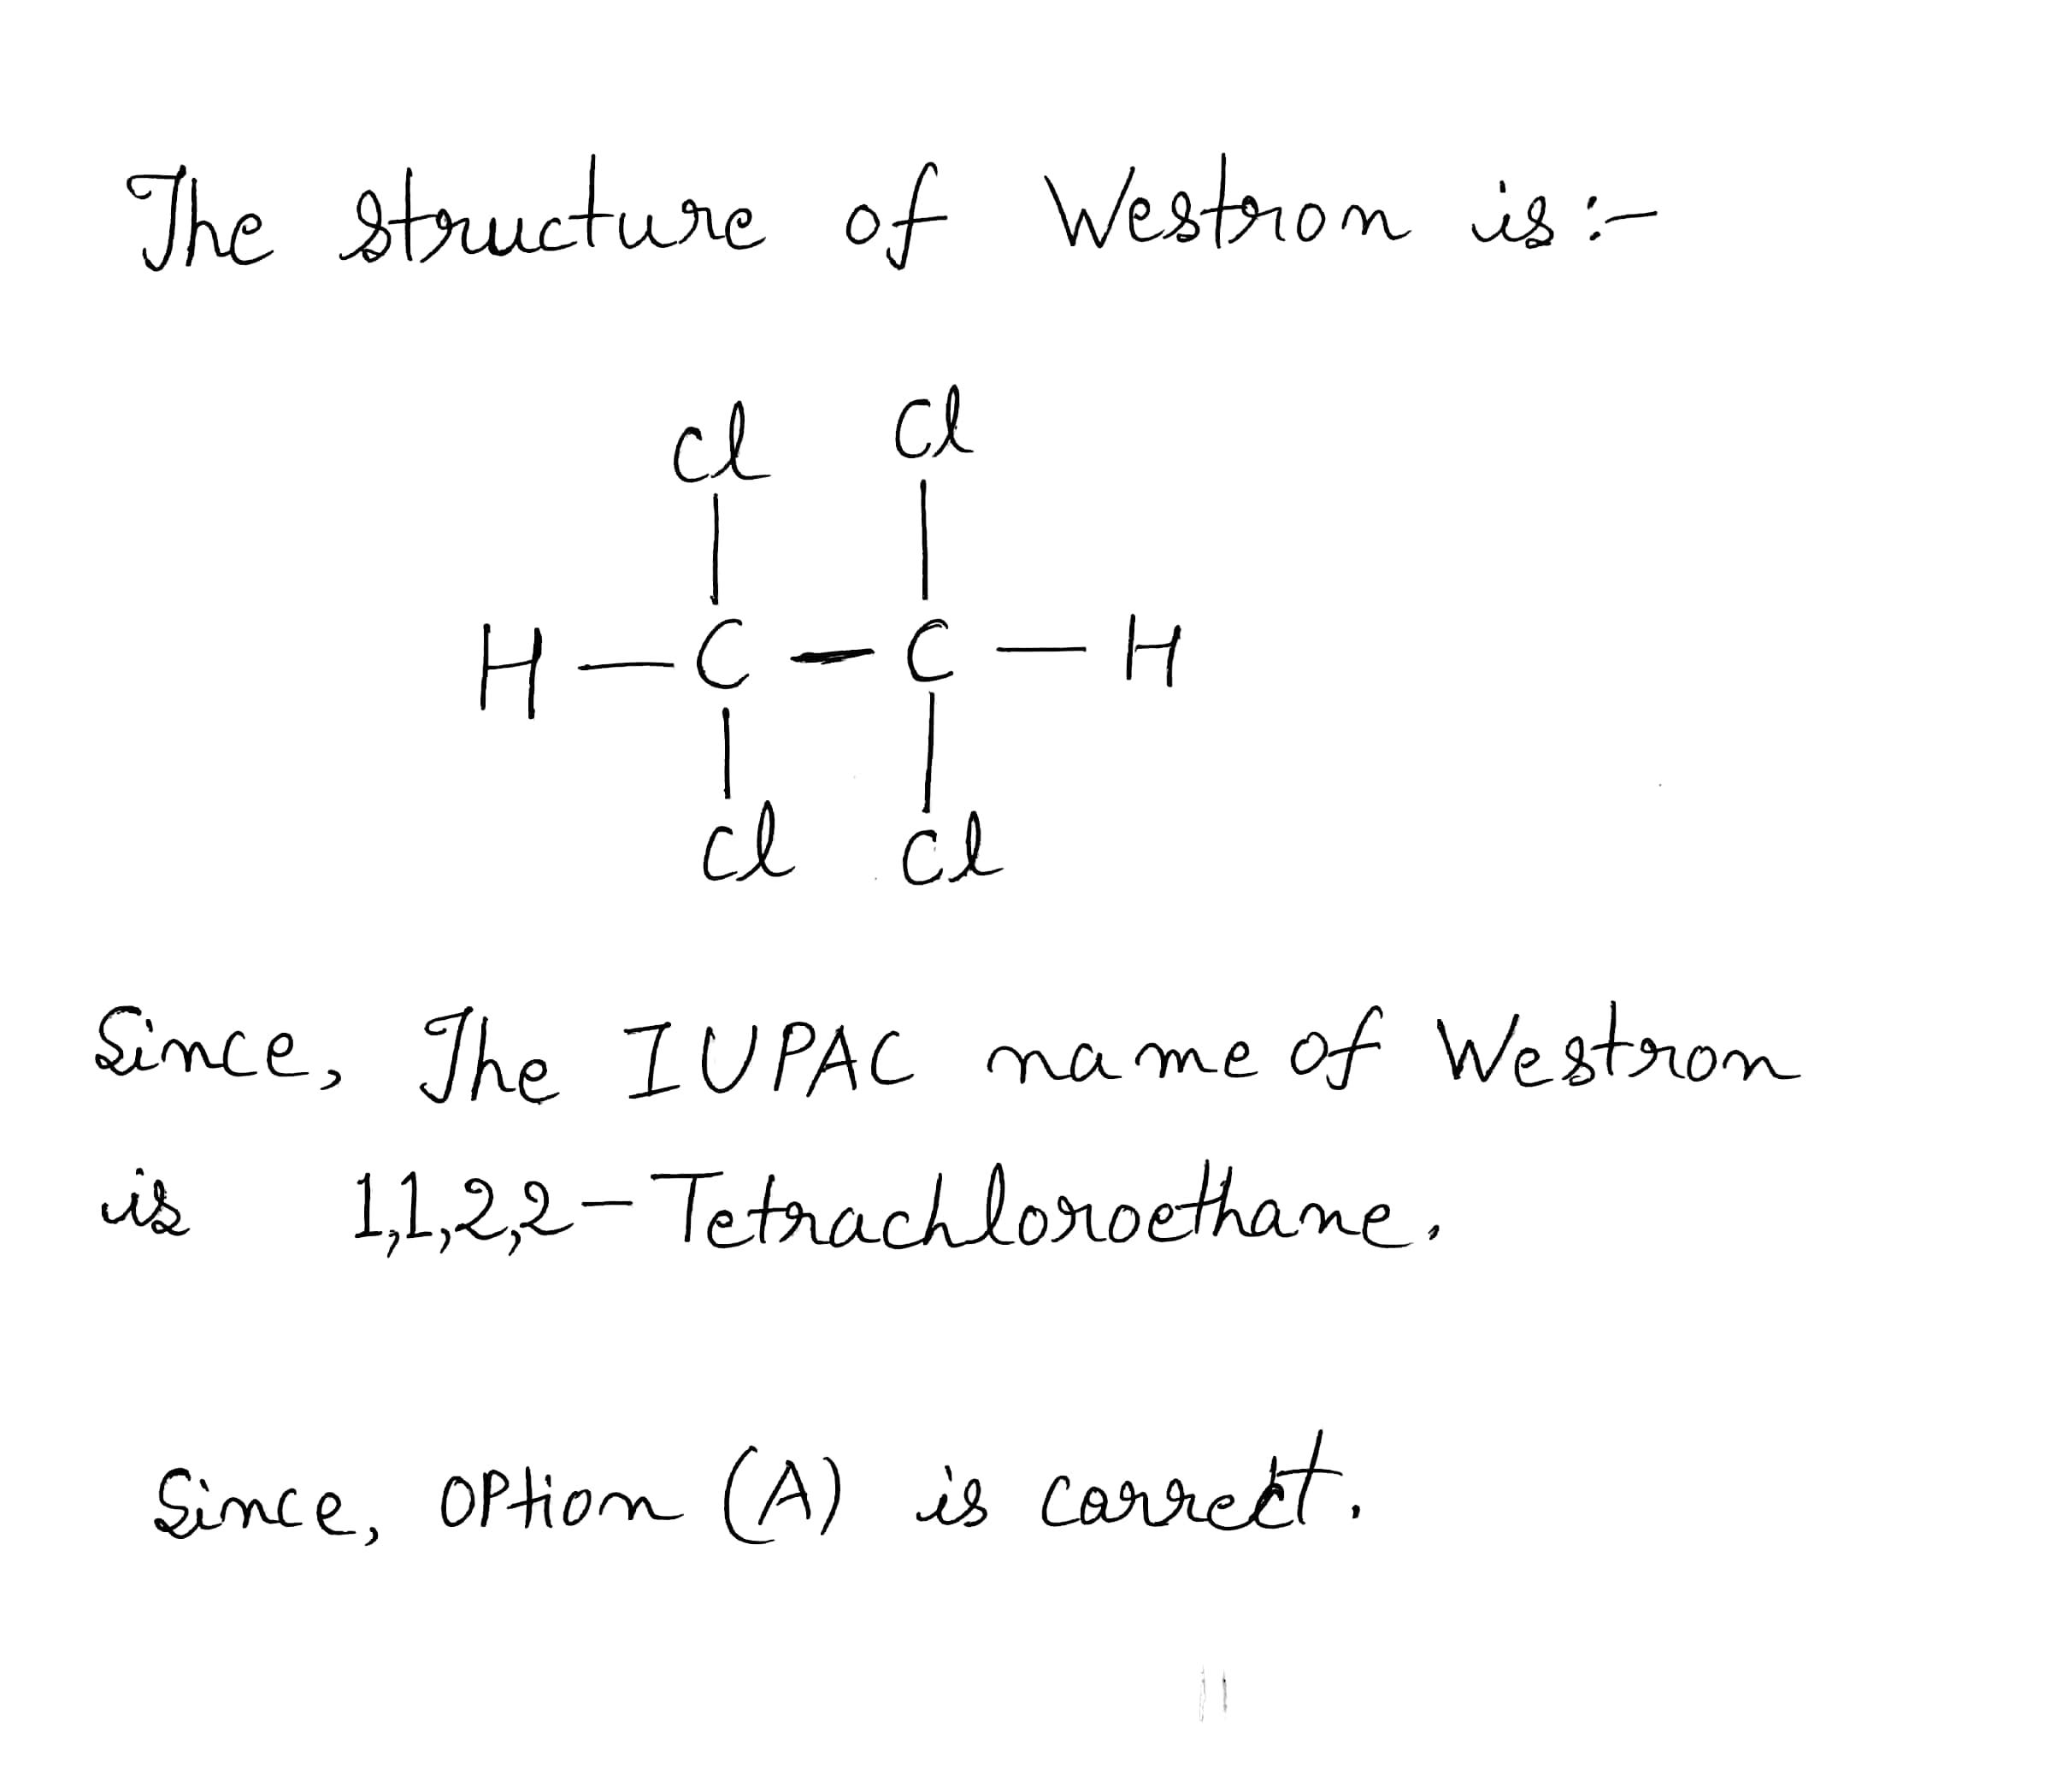 The structure of Westron is :-
Cl Cl
H—C—C—H
Cl Cl
Since, The IUPAC name of Westron
is 1,1,2,2-Tetrachloroethane.
Since, OPtion (A) is correct.